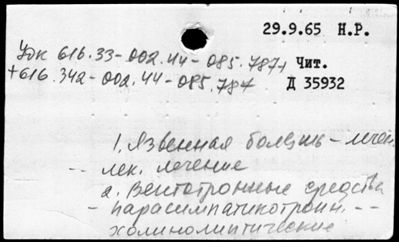 29.9.65 Н.Р.
УДК 616.33-002.44-085.787+ Чит.
+616.342-002.44-085.787 Д 35932
1. Язвенная болезнь - лечен.
-- лек. лечение
2. Вегетотропные средства
- парасимпатикотропн. --
холинолитические